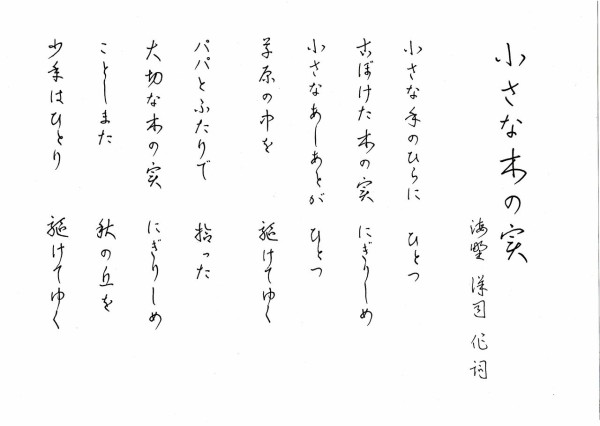 小さな木の実
海野 洋司 作詞
小さな手のひらに ひとつ
古ぼけた木の実 にぎりしめ
小さなあしあとが ひとつ
草原の中を 駆けてゆく
パパとふたりで 拾った
大切な木の実 にぎりしめ
ことしまた 秋の丘を
少年はひとり 駆けてゆく